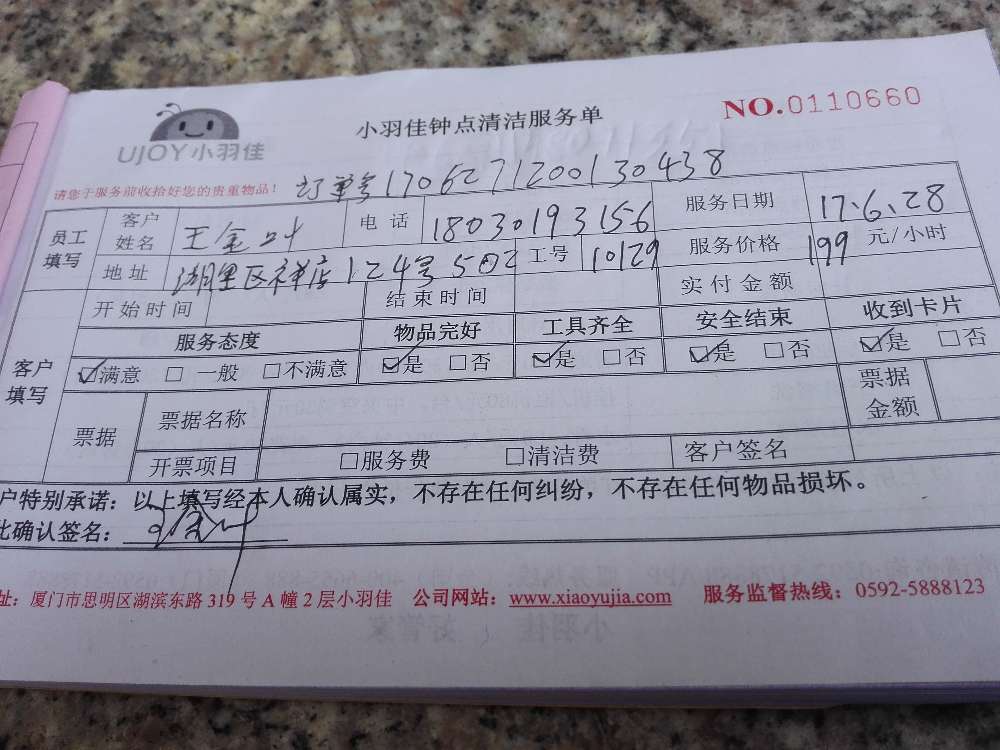 UJOY小羽佳
小羽佳钟点清洁服务单
NO.0110660
请您于服务前收拾好您的贵重物品！
订单号1706271200130438
员工填写 客户姓名 王金叶 电话 18030193156 服务日期 17.6.28
地址 湖里区祥店124号502 工号 10129 服务价格 199 元/小时
客户填写 开始时间 结束时间 实付金额
服务态度 物品完好 工具齐全 安全结束 收到卡片
☑满意 □一般 □不满意 ☑是 □否 ☑是 □否 ☑是 □否 ☑是 □否
票据 票据名称 票据金额
开票项目 □服务费 □清洁费 客户签名
户特别承诺：以上填写经本人确认属实，不存在任何纠纷，不存在任何物品损坏。
此确认签名：
址：厦门市思明区湖滨东路319号A幢2层小羽佳 公司网站：www.xiaoyujia.com 服务监督热线：0592-5888123